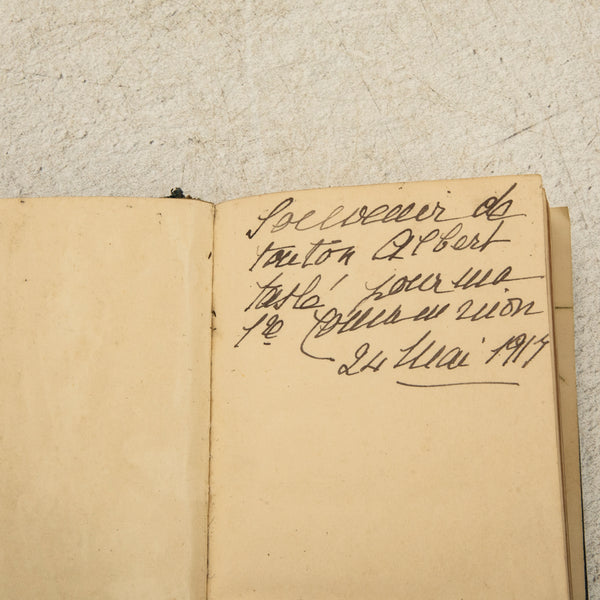 Souvenir de
tonton Albert
taslé pour ma
1re Communion
24 Mai 1917